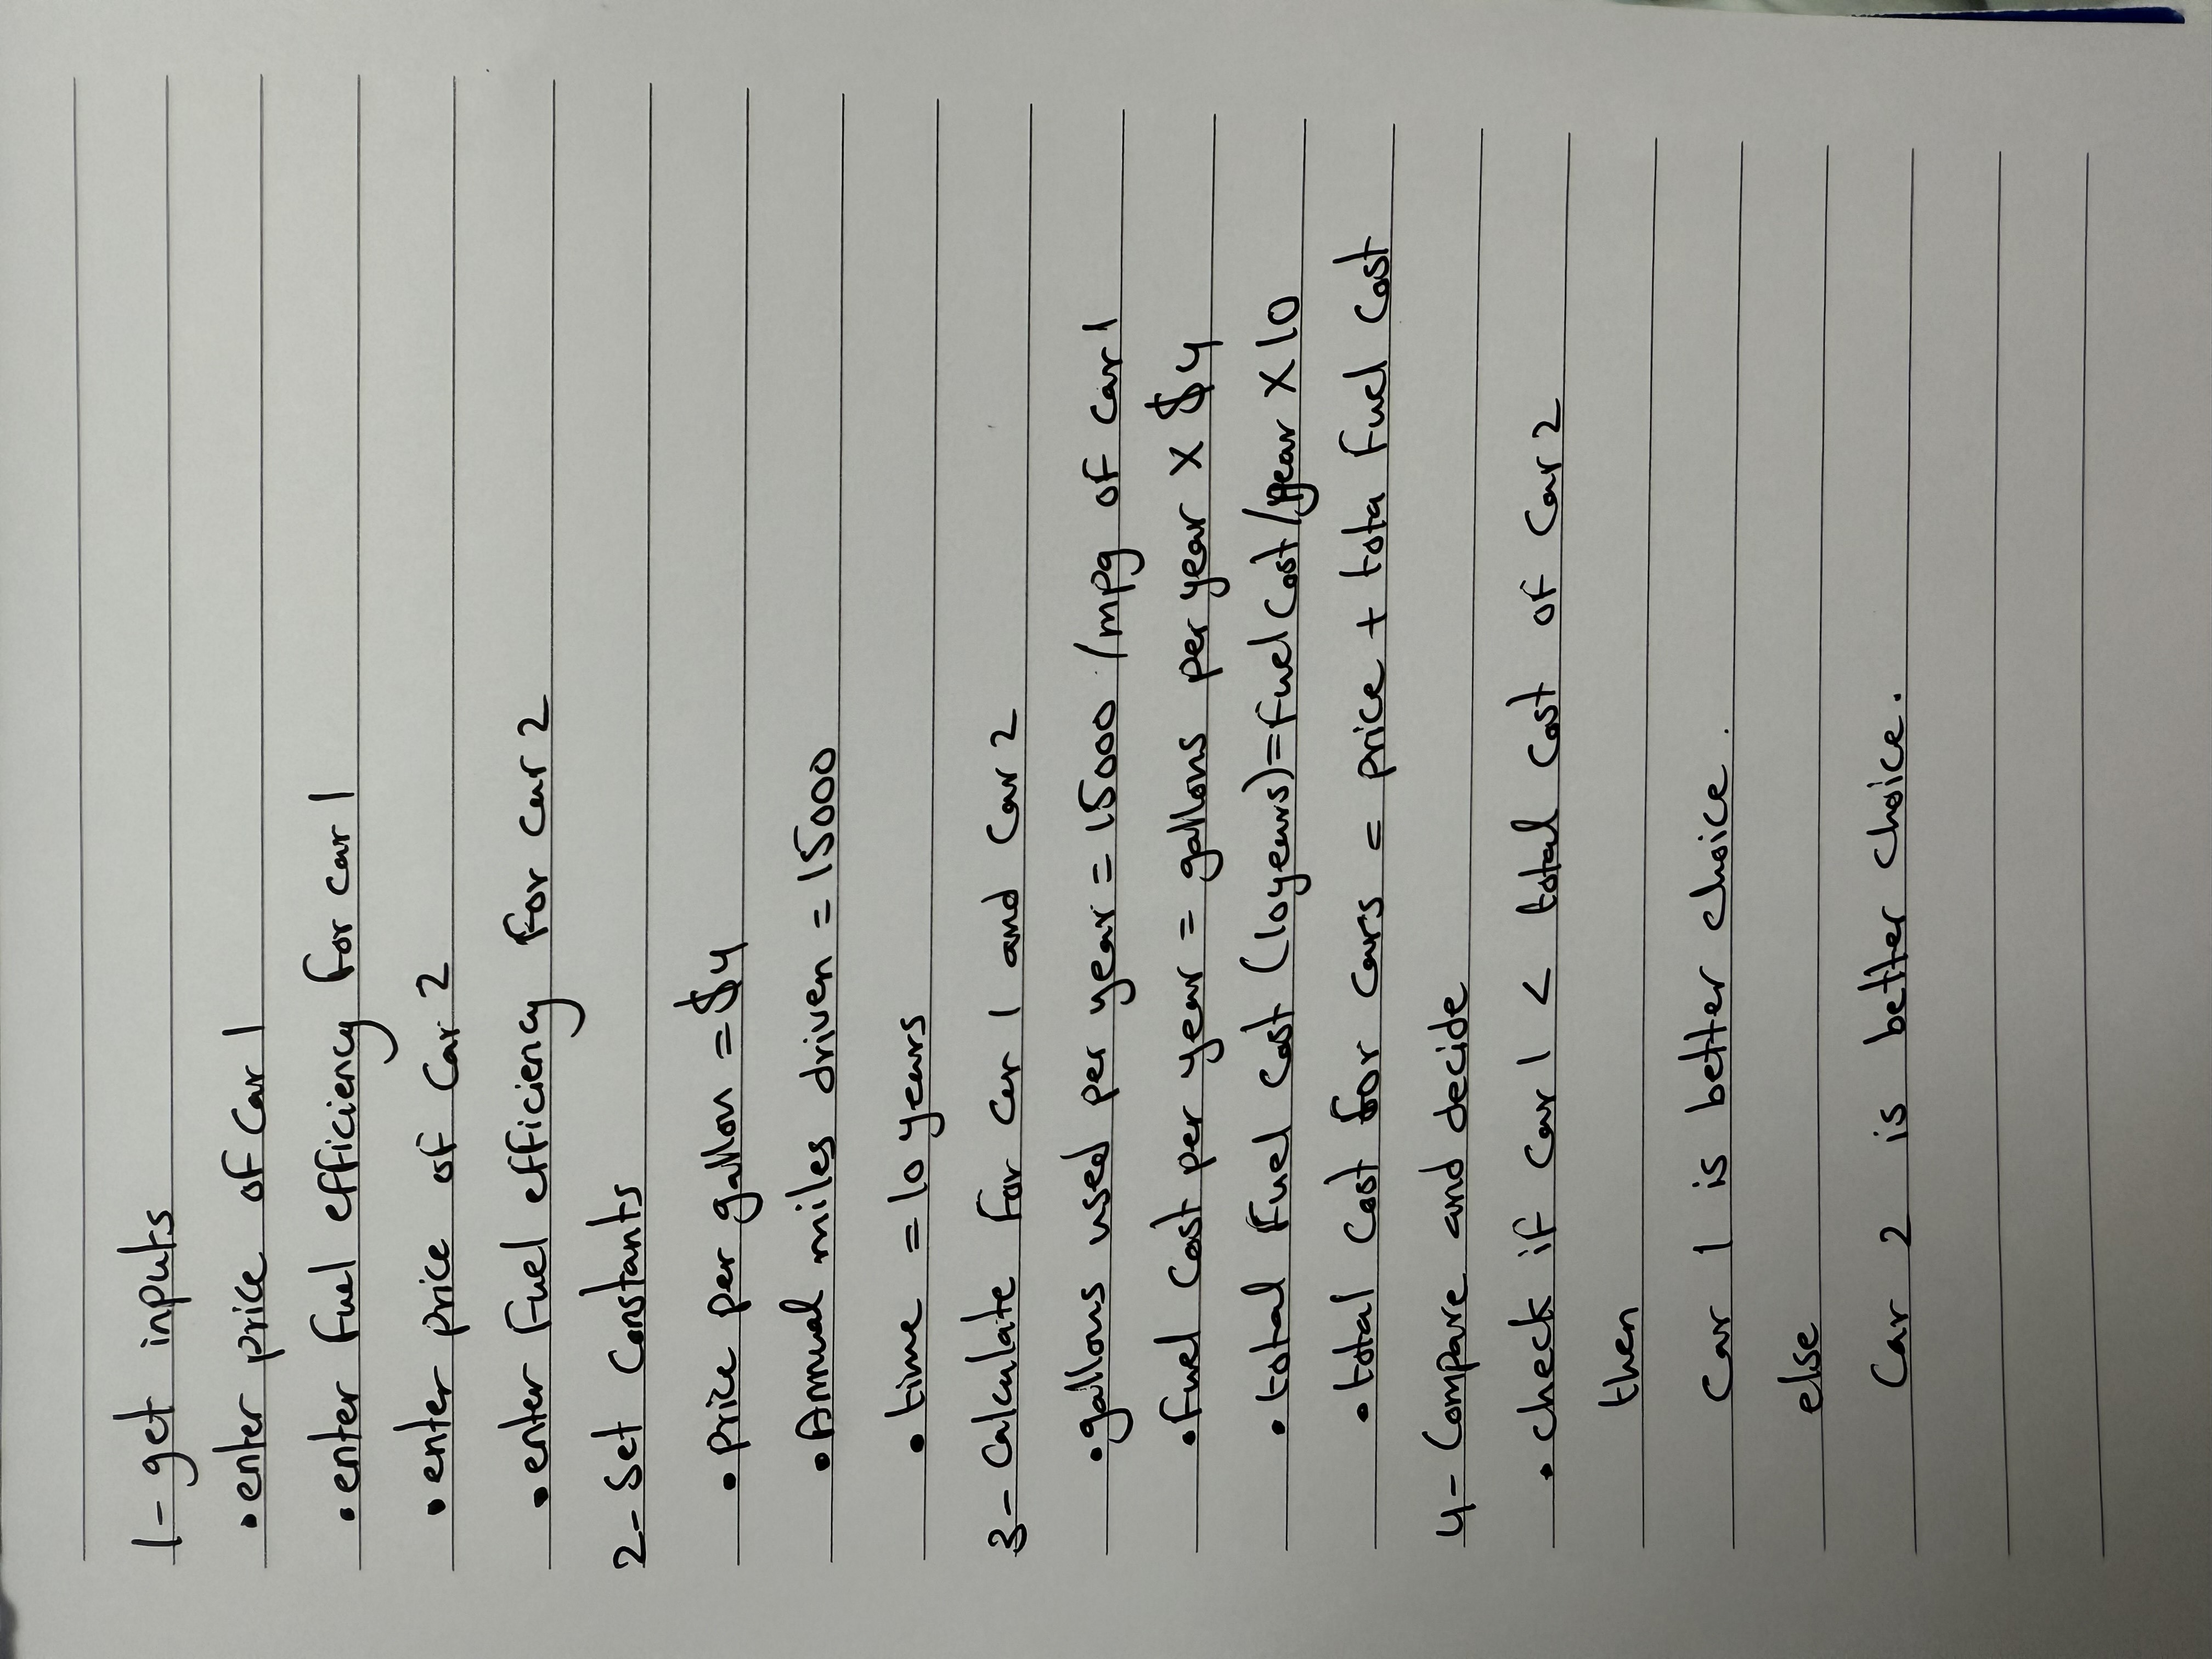 1- get inputs
• enter price of Car 1
• enter fuel efficiency for car 1
• enter price of Car 2
• enter fuel efficiency for car 2
2- Set Constants
• price per gallon = $4
• Annual miles driven = 15000
• time = 10 years
3- Calculate for car 1 and Car 2
• gallons used per year = 15000 /mpg of car 1
• Fuel Cost per year = gallons per year X $4
• total Fuel Cost (10years)=Fuel Cost/year X 10
• total Cost for cars = price + tota Fuel Cost
4- Compare and decide
• check if car 1 < total Cost of Car 2
then
Car 1 is better choice.
else
Car 2 is better choice.